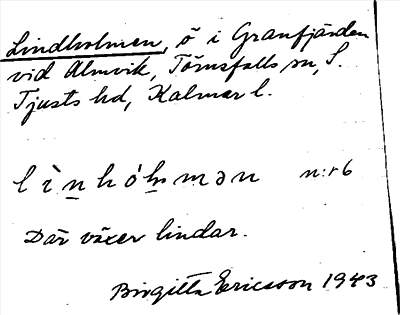 Lindholmen, ö i Granfjärden
vid Almvik, Törnsfalls sn, S.
Tjusts hd, Kalmar l.
lìn̲hó'h̲mən n:r 6
Där växer lindar.
Birgitta Ericsson 1943